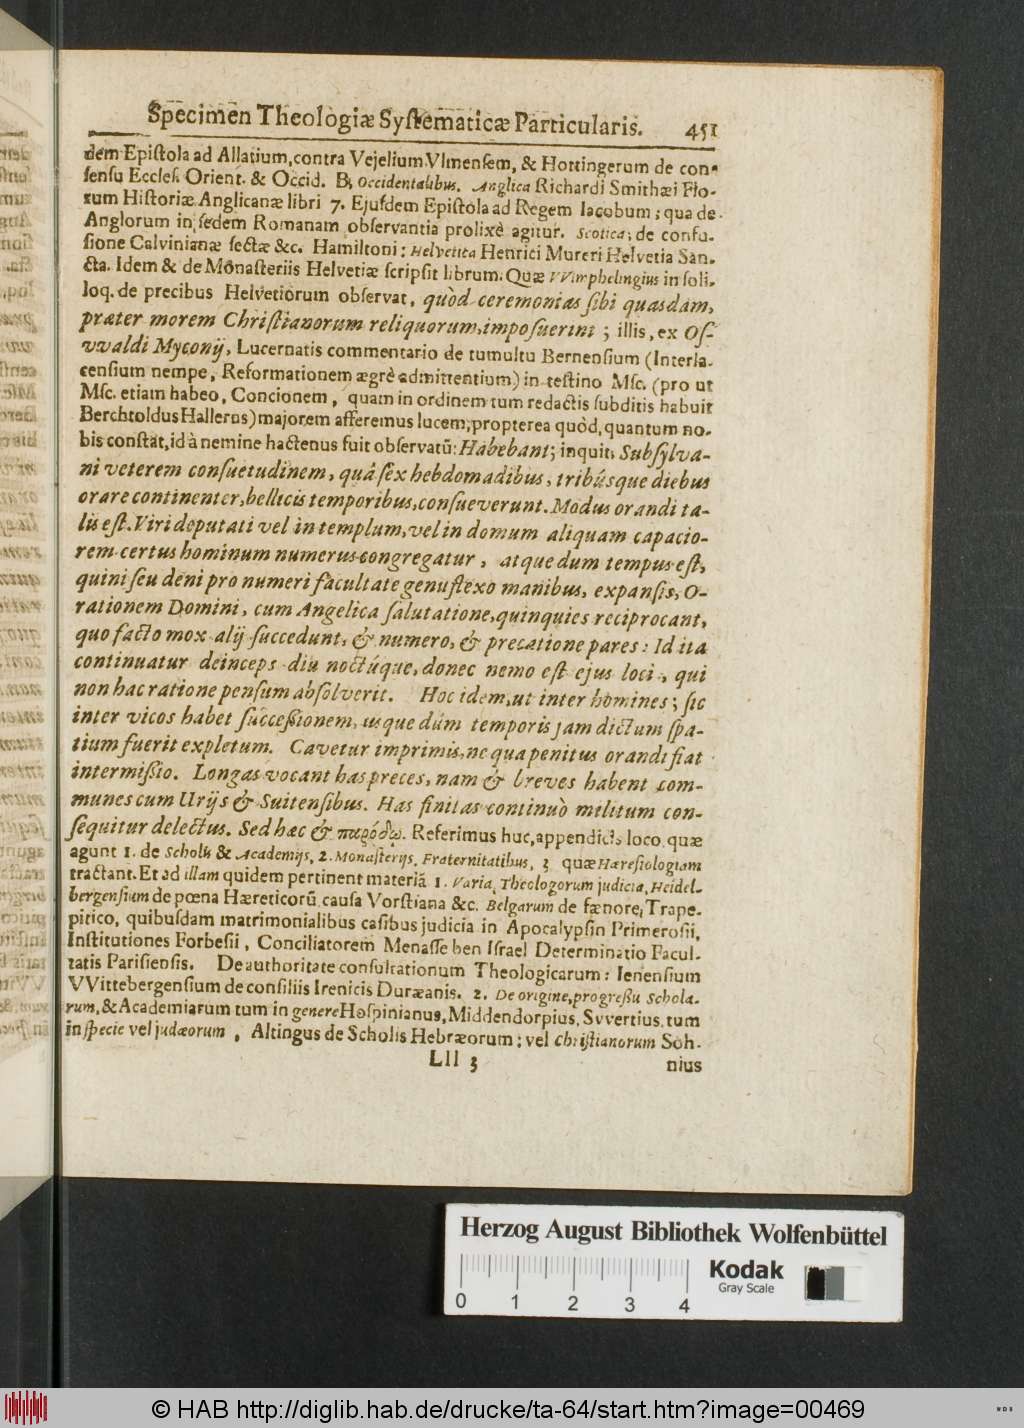 Specimen Theologiæ Syſtematicæ Particularis. 451
dem Epiſtola ad Allatium, contra Vejelium Vlmenſem, & Hottingerum de con-
ſenſu Eccleſ. Orient. & Occid. B, Occidentalibus. Anglica Richardi Smithæi Flo-
rum Hiſtoriæ Anglicanæ libri 7. Ejuſdem Epiſtola ad Regem Iacobum; qua de
Anglorum in ſedem Romanam obſervantia prolixè agitur. Scotica; de confu-
ſione Calvinianæ ſectæ &c. Hamiltoni: Helvetica Henrici Mureri Helvetia San-
cta. Idem & de Monaſteriis Helvetiæ ſcripſit librum. Quæ VVimphelingius in ſoli-
loq. de precibus Helvetiorum obſervat, quòd ceremonias ſibi quasdam,
præter morem Chriſtianorum reliquorum, impoſuerint; illis, ex Oſ-
vvaldi Myconij, Lucernatis commentario de tumultu Bernenſium (Interla-
cenſium nempe, Reformationem ægrè admittentium) in teſtino Mſc. (pro ut
Mſc. etiam habeo, Concionem, quam in ordinem tum redactis ſubditis habuit
Berchtoldus Hallerus) majorem afferemus lucem; propterea quòd, quantum no-
bis conſtat, id à nemine hactenus fuit obſervatũ: Habebant; inquit, Subſylva-
ni veterem conſuetudinem, quâ ſex hebdomadibus, tribúsque diebus
orare continenter, bellicis temporibus, conſueverunt. Modus orandi ta-
lis eſt. Viri deputati vel in templum, vel in domum aliquam capacio-
rem certus hominum numerus congregatur, atque dum tempus eſt,
quini ſeu deni pro numeri facultate genuflexo manibus, expanſis, O-
rationem Domini, cum Angelica ſalutatione, quinquies reciprocant,
quo facto mox alij ſuccedunt, & numero, & precatione pares: Id ita
continuatur deinceps diu noctúque, donec nemo eſt ejus loci, qui
non hac ratione penſum abſolverit. Hoc idem, ut inter homines; ſic
inter vicos habet ſucceſſionem, usque dùm temporis jam dictum ſpa-
tium fuerit expletum. Cavetur imprimis, ne qua penitus orandi fiat
intermiſſio. Longas vocant has preces, nam & breves habent com-
munes cum Urijs & Suitenſibus. Has finitas continuò militum con-
ſequitur delectus. Sed hæc & παρόδῳ. Referimus huc, appendicis loco quæ
agunt 1. de Scholis & Academijs, 2. Monaſterijs, Fraternitatibus, 3 quæ Hæreſiologiam
tractant. Et ad illam quidem pertinent materiã 1. Varia, Theologorum judicia, Heidel-
bergenſium de pœna Hæreticorũ, cauſa Vorſtiana &c. Belgarum de fœnore, Trape-
pitico, quibuſdam matrimonialibus caſibus judicia in Apocalypſin Primeroſii,
Inſtitutiones Forbeſii, Conciliatorem Menaſſe ben Iſrael Determinatio Facul-
tatis Pariſienſis. De authoritate conſultationum Theologicarum: Ienenſium
VVittebergenſium de conſiliis Irenicis Duræanis. 2. De origine, progreſſu Schola-
rum, & Academiarum tum in genere Hoſpinianus, Middendorpius, Svvertius, tum
in ſpecie vel judæorum, Altingus de Scholis Hebræorum; vel Chriſtianorum Soh-
Lll 3 nius
Herzog August Bibliothek Wolfenbüttel
0 1 2 3 4
Kodak
Gray Scale
© HAB http://diglib.hab.de/drucke/ta-64/start.htm?image=00469